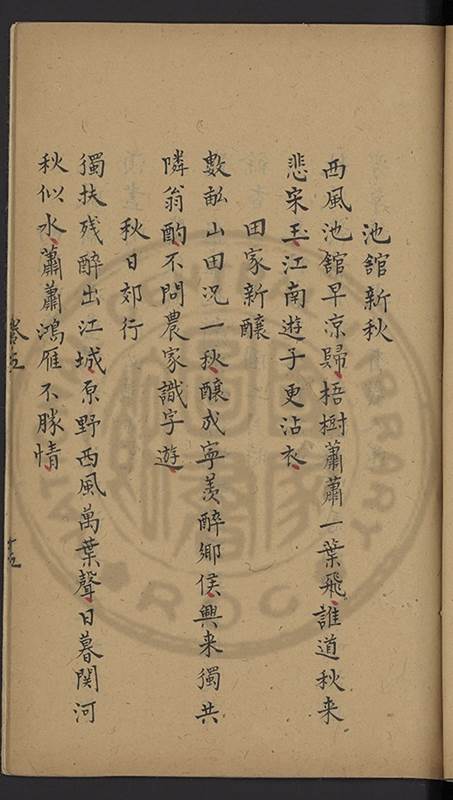 池舘新秋
西風池舘早涼歸梧樹蕭蕭一葉飛誰道秋来
悲宋玉江南遊子更沾衣
田家新釀
數畝山田况一秋釀成寧羡醉鄉侯興来獨共
隣翁酌不問農家識字遊
秋日郊行
獨扶残醉出江城原野西風萬葉聲日暮関河
秋似水蕭蕭鴻雁不勝情
卷五